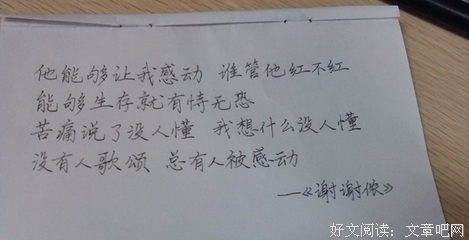 他能够让我感动 谁管他红不红
能够生存就有恃无恐
苦痛说了没人懂 我想什么没人懂
没有人歌颂 总有人被感动
—《谢谢侬》
好文阅读：文章吧网